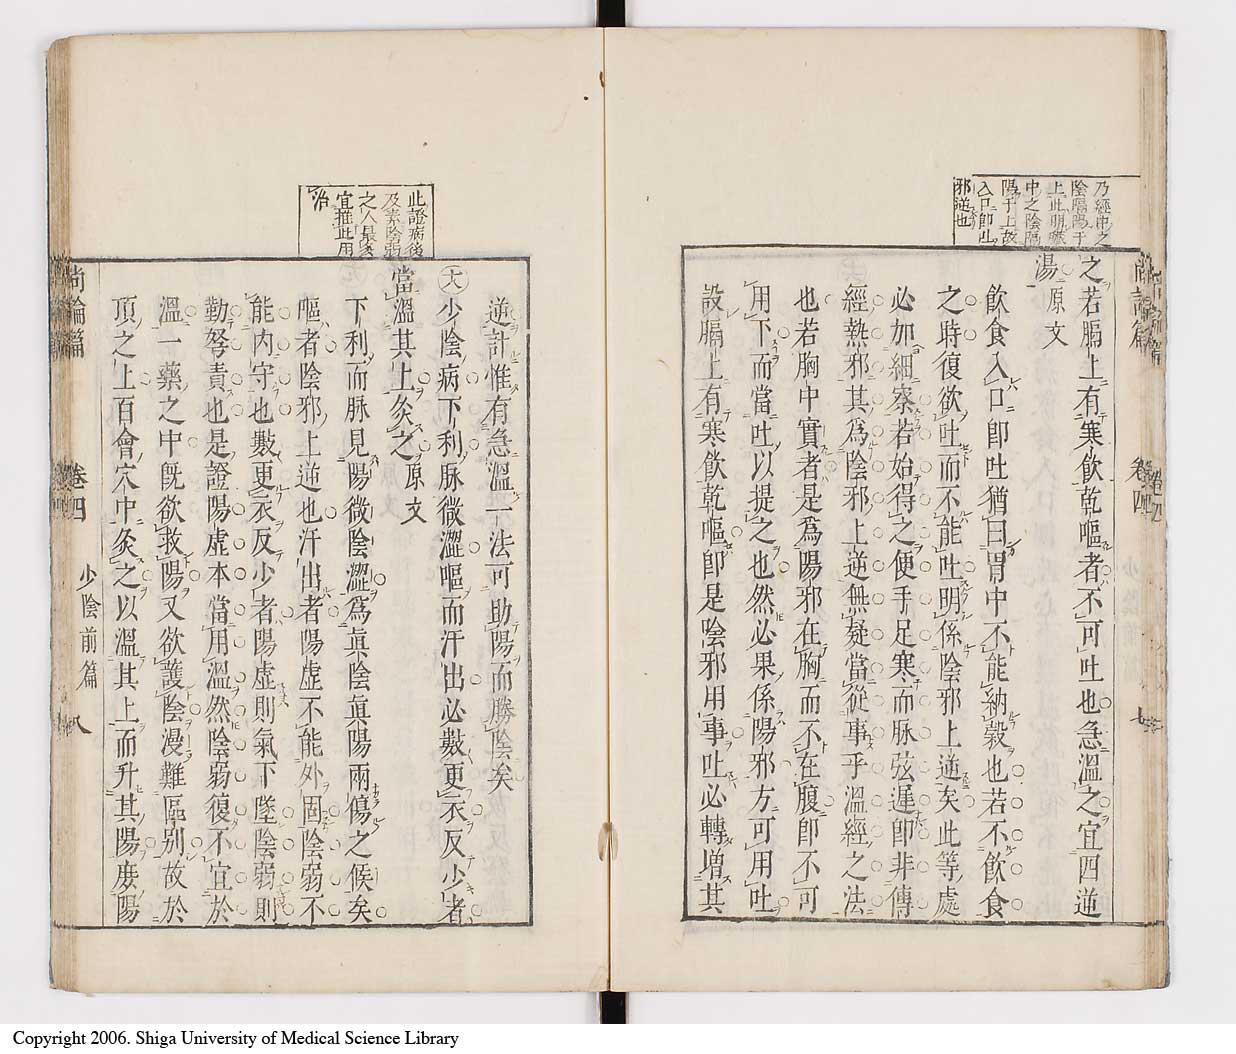 乃經中之
陰陽陽于
上此明膈
中之陰隔
陽于上故
入口即吐
邪逆也
之若膈上有寒飲乾嘔者不可吐也急溫之宜四逆
湯原文
飲食入口即吐猶曰胃中不能納穀也若不飲食
之時復欲吐而不能吐明係陰邪上逆矣此等處
必加細察若始得之便手足寒而脉弦遲即非傳
經熱邪其爲陰邪上逆無疑當從事乎溫經之法
也若胸中實者是爲陽邪在胸而不在腹即不可
用下而當吐以提之也然必果係陽邪方可用吐
設膈上有寒飲乾嘔即是陰邪用事吐必轉增其
尚論篇
卷四
七
此證病後
及素陰弱
之人最多
宜推此用
治
逆計惟有急溫一法可助陽而勝陰矣
大少陰病下利脉微澀嘔而汗出必數更衣反少者
當溫其上灸之原文
下利而脉見陽微陰澀爲眞陰眞陽兩傷之候矣
嘔者陰邪上逆也汗出者陽虛不能外固陰弱不
能內守也數更衣反少者陽虛則氣下墜陰弱則
勤努責也是證陽虛本當用溫然陰弱復不宜於
溫一藥之中旣欲救陽又欲護陰漫難區別故於
頂之上百會穴中灸之以溫其上而升其陽庶陽
尚論篇
卷四
少陰前篇
八
Copyright 2006. Shiga University of Medical Science Library